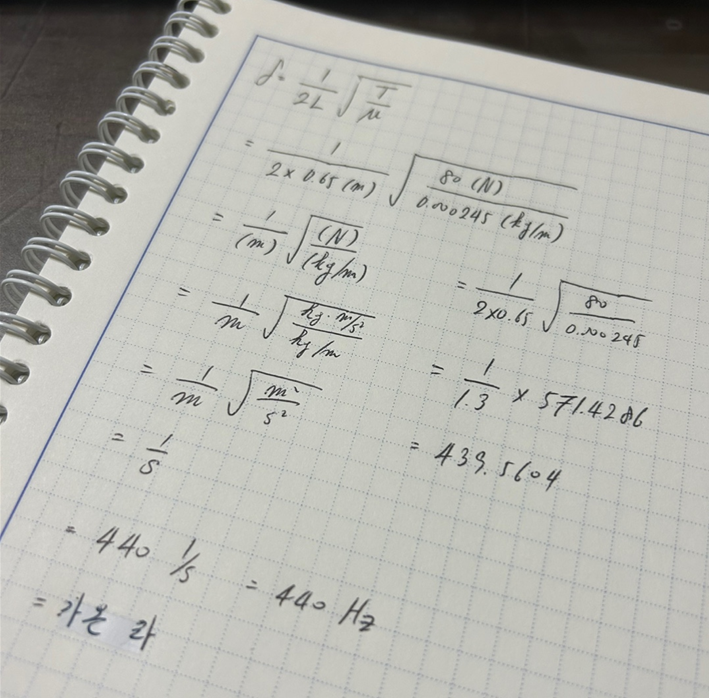 f = 1/2L √(T/μ)
= 1/(2 × 0.65 (m)) √(80 (N)/0.000245 (kg/m))
= 1/(m) √((N)/(kg/m))
= 1/m √((kg·m/s²)/(kg/m))
= 1/m √(m²/s²)
= 1/s
= 1/(2×0.65) √(80/0.000245)
= 1/1.3 × 571.4286
= 439.5604
= 440 1/s = 440 Hz
= 가온 라